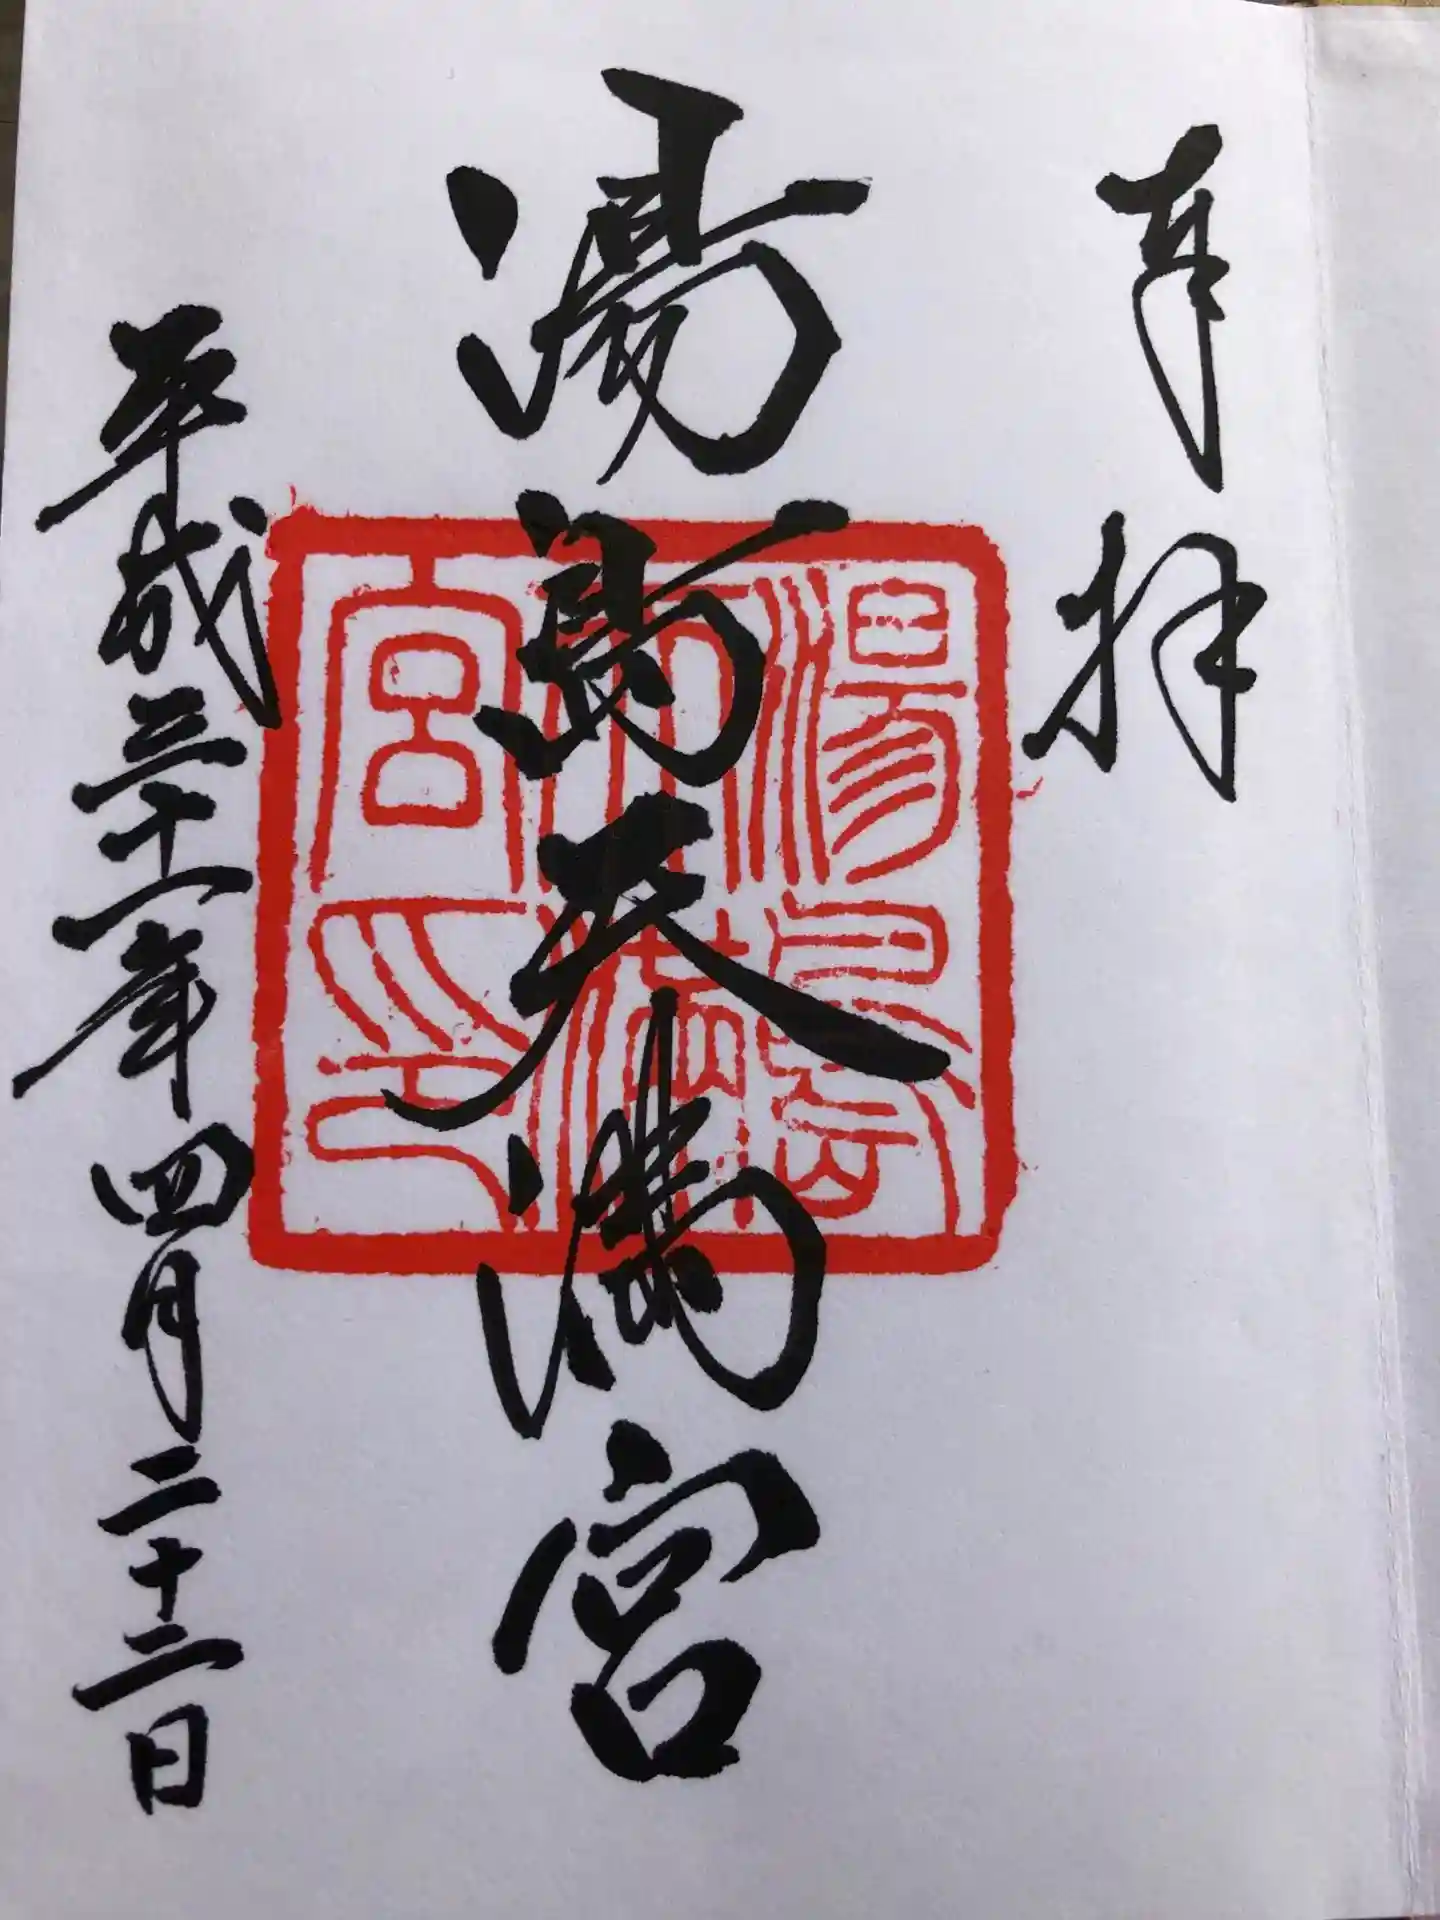 奉拝
湯島天満宮
湯島
天満
宮印
平成三十一年四月二十二日